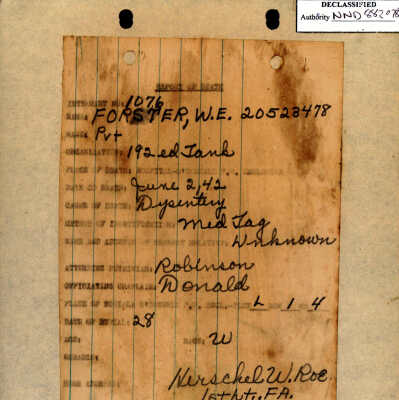 DECLASSIFIED
Authority NND 883078
REPORT OF DEATH
INTERMENT NO: 1076
NAME: FORSTER, W.E. 20523478
RANK: Pvt
ORGANIZATION: 192ed Tank
PLACE OF DEATH: HOSPITAL
DATE OF DEATH: June 2, 42
CAUSE OF DEATH: Dysentery
METHOD OF IDENTIFICATION: Med Tag
NAME AND ADDRESS OF NEAREST RELATIVE: Unknown
ATTENDING PHYSICIAN: Robinson
OFFICIATING CHAPLAIN: Donald
PLACE OF BURIAL: L 1 4
DATE OF BURIAL: 28
AGE: RACE: W
REMARKS:
Herschel W. Roe
1st Lt., F.A.